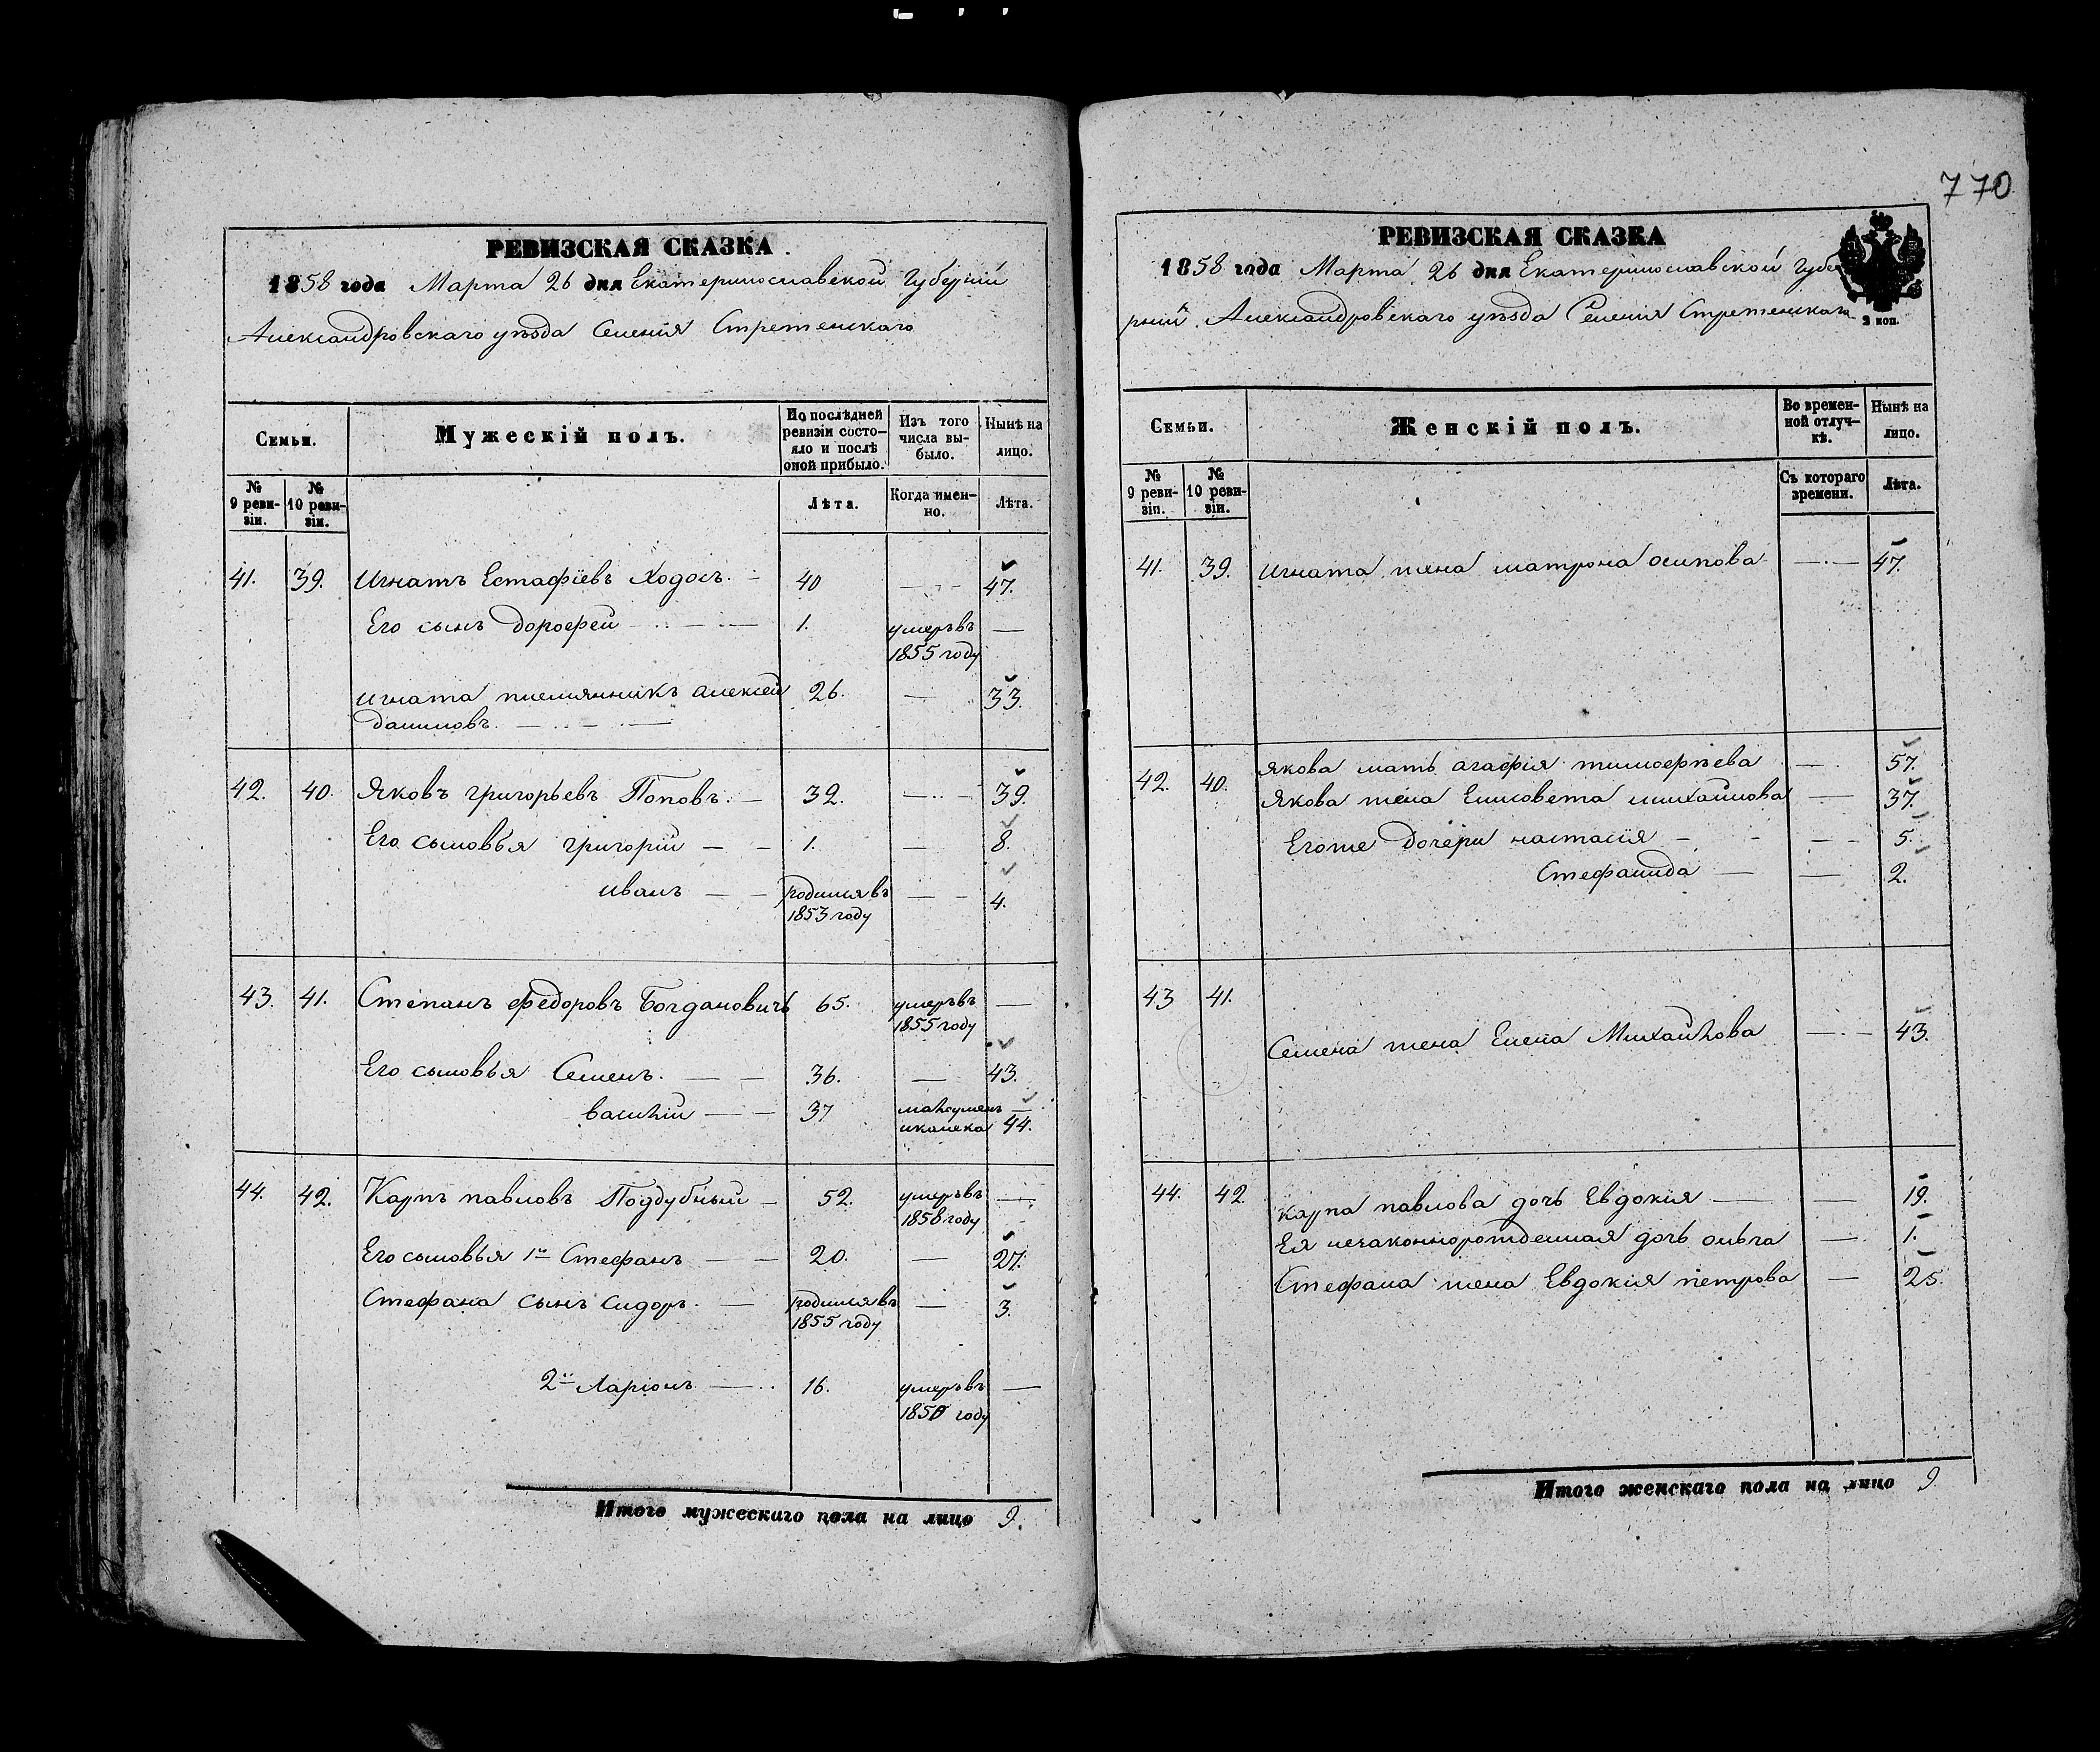 770
РЕВИЗСКАЯ СКАЗКА
1858 года Марта 26 дня Екатеринославской Губерніи
Александровскаго уѣзда Селенія Стретенскаго
Семьи.
Мужескій полъ.
По послѣдней ревизіи состояло и послѣ оной прибыло.
Изъ того числа выбыло.
Нынѣ на лицо.
№ 9 ревизіи.
№ 10 ревизіи.
Лѣта.
Когда именно.
Лѣта.
41. 39. Игнатъ Естафіевъ Ходосъ. 40 — 47.
Его сынъ дорофей 1. умеръ въ 1855 году —
Игната племянникъ алексей даниловъ. 26. — 33.
42. 40. Яковъ григорьевъ Поповъ. 32. — 39.
Его сыновья григорій — 1. — 8.
иванъ — родился въ 1853 году — 4.
43. 41. Степанъ федоровъ Богдановичъ 65. умеръ въ 1855 году —
Его сыновья Семенъ. — 36. — 43.
василій — 37 44.
44. 42. Карпъ павловъ Поддубный — 52. умеръ въ 1858 году —
Его сыновья 1й Стефанъ — 20. — 27.
Стефана сынъ сидоръ. — родился въ 1855 году — 3.
2й Ларіонъ — 16. умеръ въ 1850 году —
Итого мужескаго пола на лицо 9.
РЕВИЗСКАЯ СКАЗКА
1858 года Марта 26 дня Екатеринославской Губе
рніи Александровскаго уѣзда Селенія Стретенскаго
2 коп.
Семьи.
Женскій полъ.
Во временной отлучкѣ.
Нынѣ на лицо.
№ 9 ревизіи.
№ 10 ревизіи.
Съ котораго времени.
Лѣта.
41. 39. Игната жена матрона осипова — 47.
42. 40. Якова мать агафія тимофѣева — 57.
Якова жена Елисовета михайлова — 37.
Егоже дочери настасія — 5.
Стефанида — 2.
43 41. Семена жена Елена Михайлова — 43.
44. 42. Карпа павлова дочь Евдокія — 19.
Ея незаконнорожденная дочь ольга — 1.
Стефана жена Евдокія петрова — 25.
Итого женскаго пола на лицо 9.